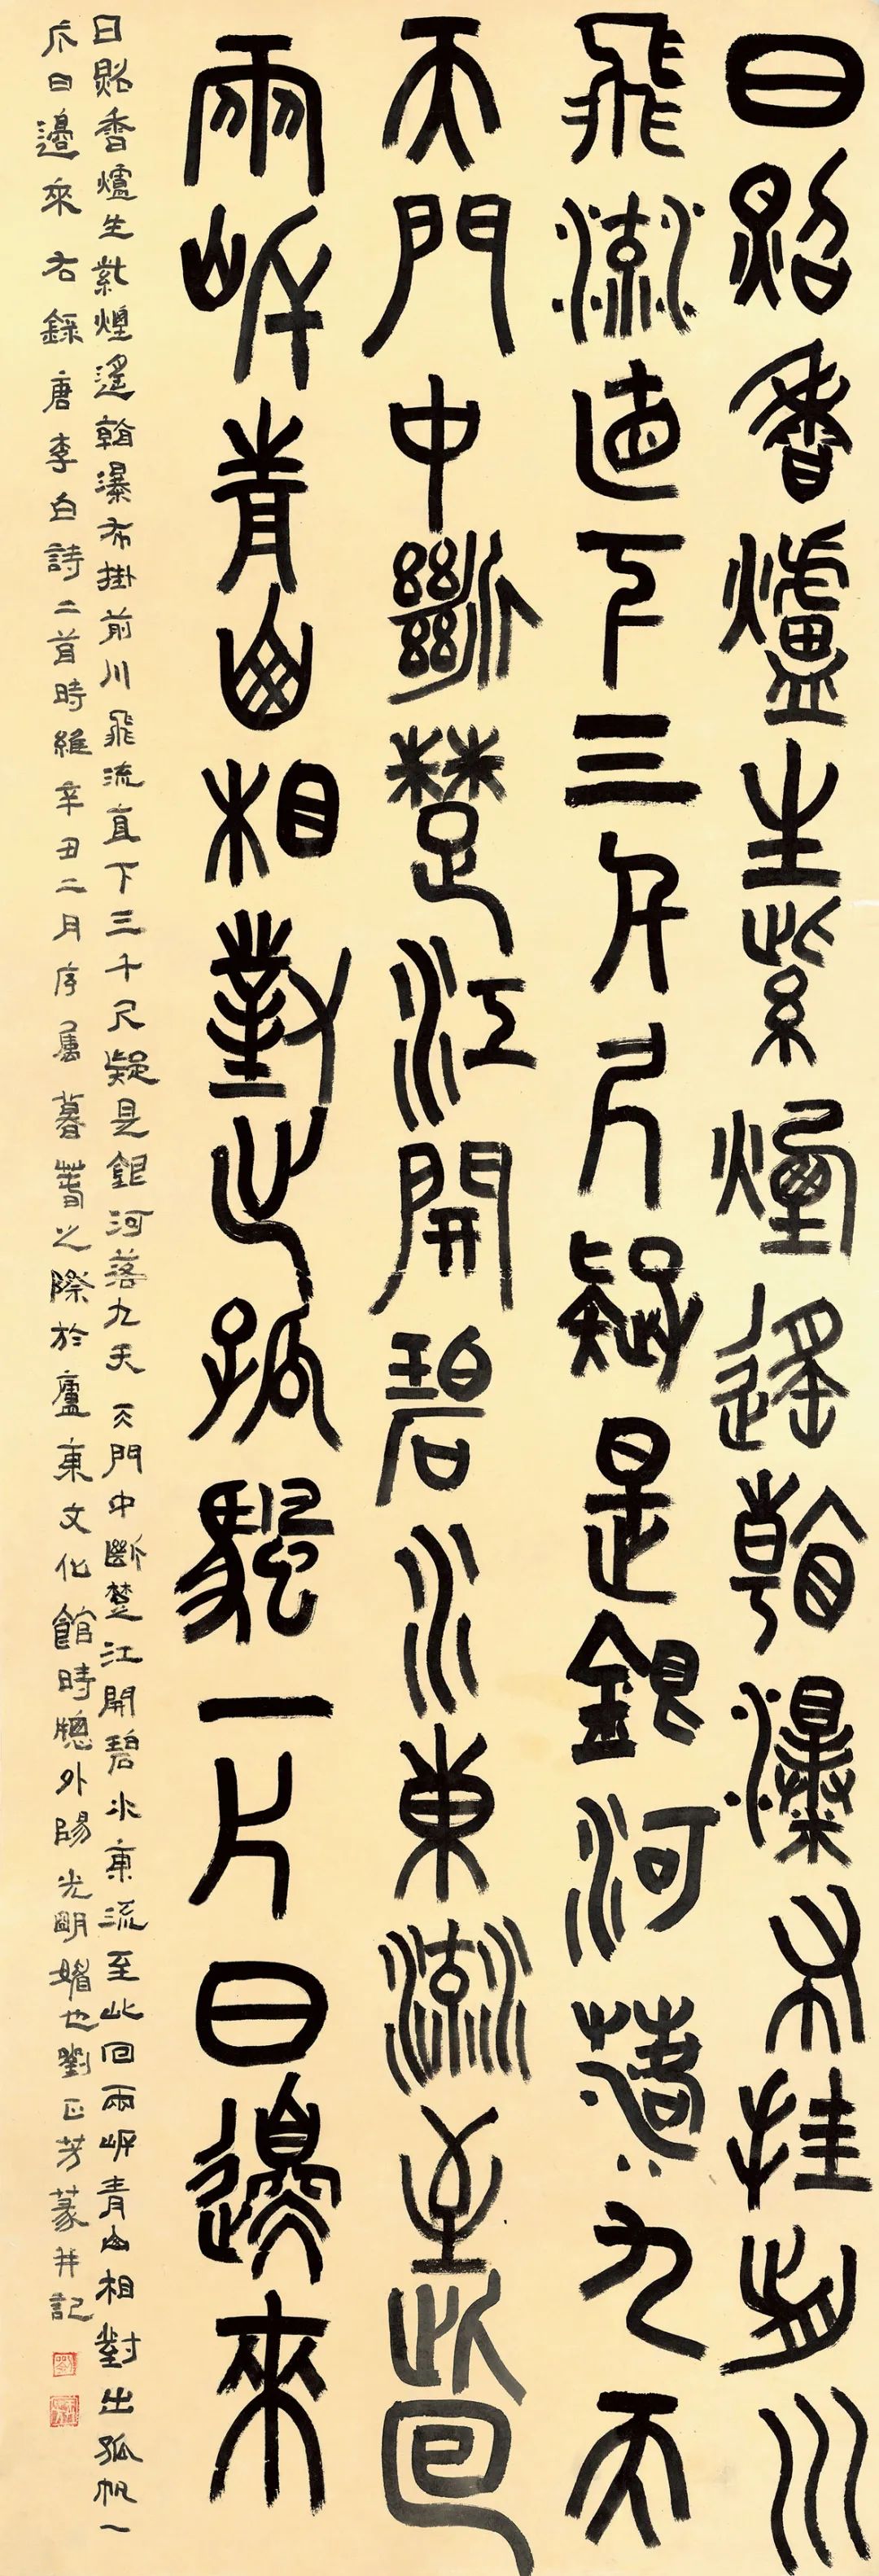 日照香爐生紫煙遙看瀑布挂前川
飛流直下三千尺疑是銀河落九天
天門中斷楚江開碧水東流至此回
兩岸青山相對出孤帆一片日邊來
日照香爐生紫煙遙看瀑布掛前川飛流直下三千尺疑是銀河落九天天門中斷楚江開碧水東流至此回兩岸青山相對出孤帆一
片日邊來右錄唐李白詩二首時維辛丑二月序屬暮春之際於廬東文化館時牕外陽光明媚也劉正芳篆并記